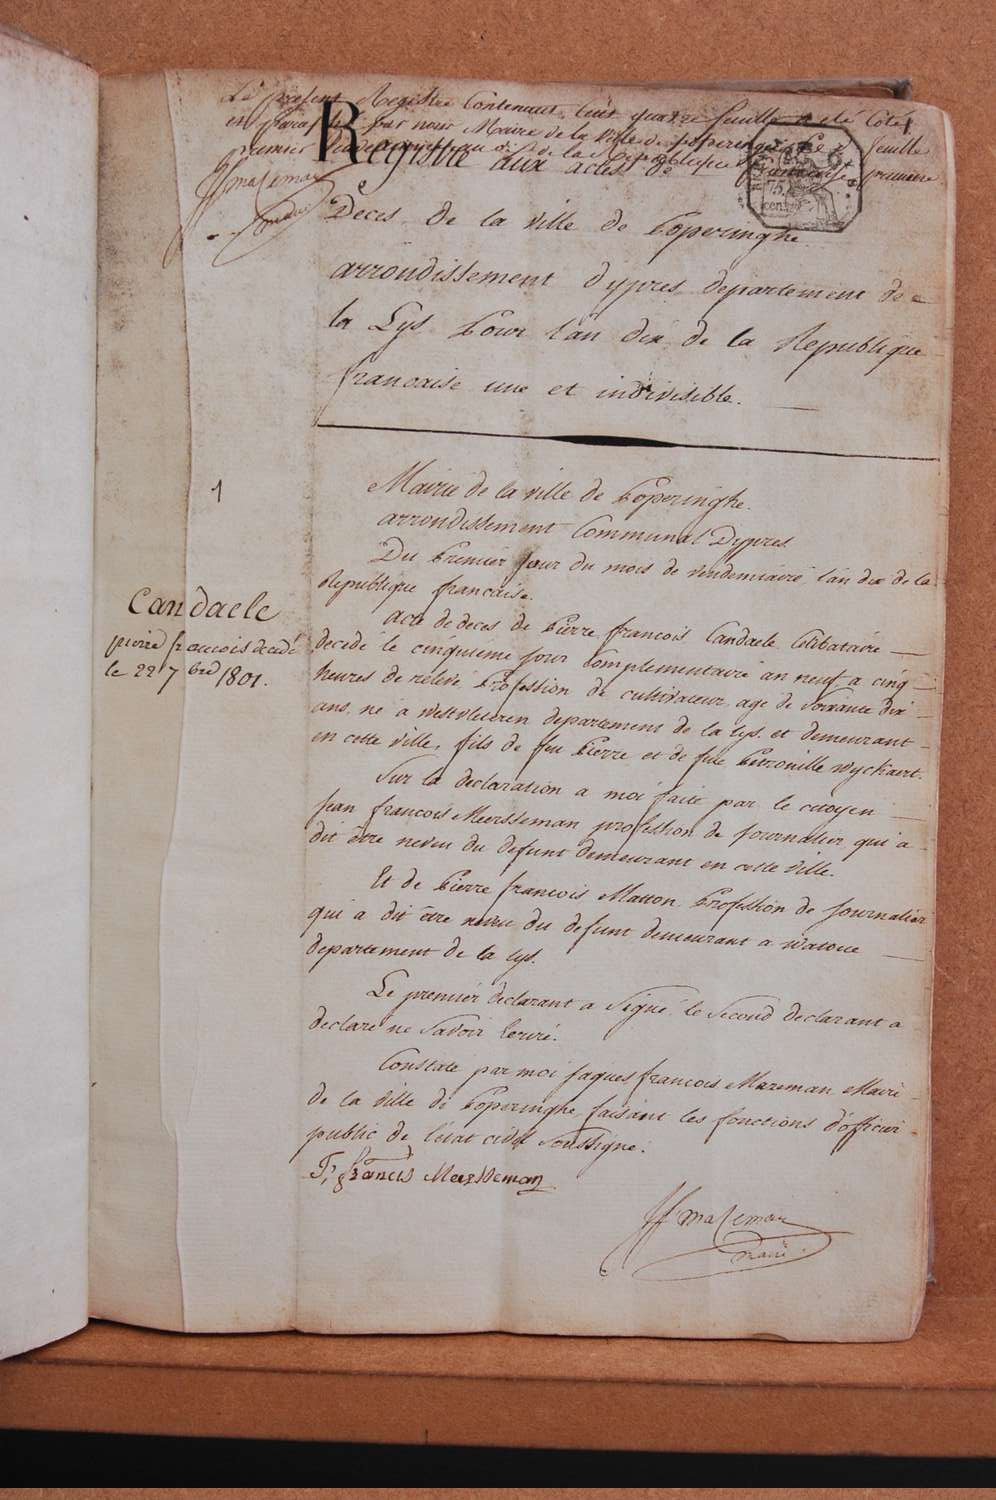 Le present Registre Contenant huit quatre feuille a été Coté
et paraphé par nous Maire de la ville de poperinge Ce feuille
premier an dix de la Republique francaise premiere
JfmaZeman
maire
Registre aux actes de
Décés de la ville de Poperinghe
arrondissement d'ypres departement de
la Lys Pour l'an dix de la Republique
francaise une et indivisible.
75
cent
1
Mairie de la ville de Poperinghe.
arrondissement Communal D'ypres.
Du Premier jour du mois de vendemiaire l'an dix de la
Republique francaise.
Candaele
pierre francois decedé
le 22 7bre 1801.
acte de deces de Pierre francois Candaele Célibataire
decedé le cinquieme jour Complementaire an neuf a cinq
heures de relevé Profession de cultivateur agé de soixante dix
ans, né a westvleteren departement de la lys. et demeurant
en cette ville, fils de feu Pierre et de feue Petronille wyckaert.
Sur la declaration a moi faite par le citoyen
Jean francois Meersseman profession de Journalier qui a
dit être neveu du defunt demeurant en cette ville.
Et de Pierre francois Matton Profession de Journalier
qui a dit être neveu du defunt demeurant a watoue
departement de la lys.
Le premier declarant a Signé, le Second declarant a
declaré ne Savoir Ecrire.
Constaté par moi Jaques francois Mazeman Maire
de la ville de Poperinghe faisant les fonctions d'officier
public de l'état civil Soussigné.
J, francis Meersseman
JfmaZeman
maire